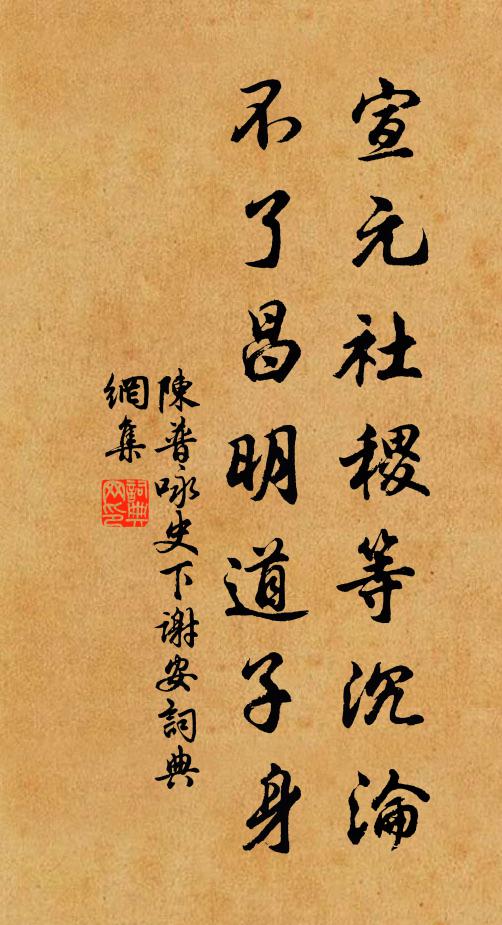 宣元社稷等沉淪
不了昌明道子身
陳普咏史下謝安詞典
網集
詞典網印